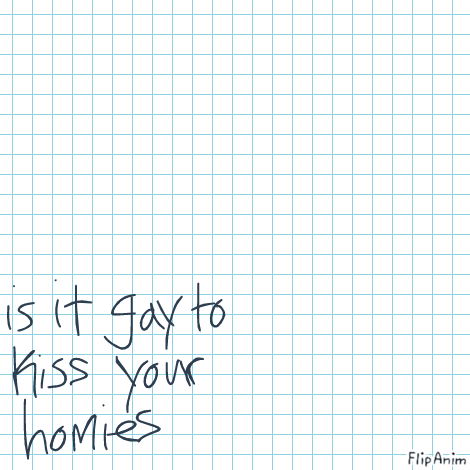 is it gay to
kiss your
homies
FlipAnim